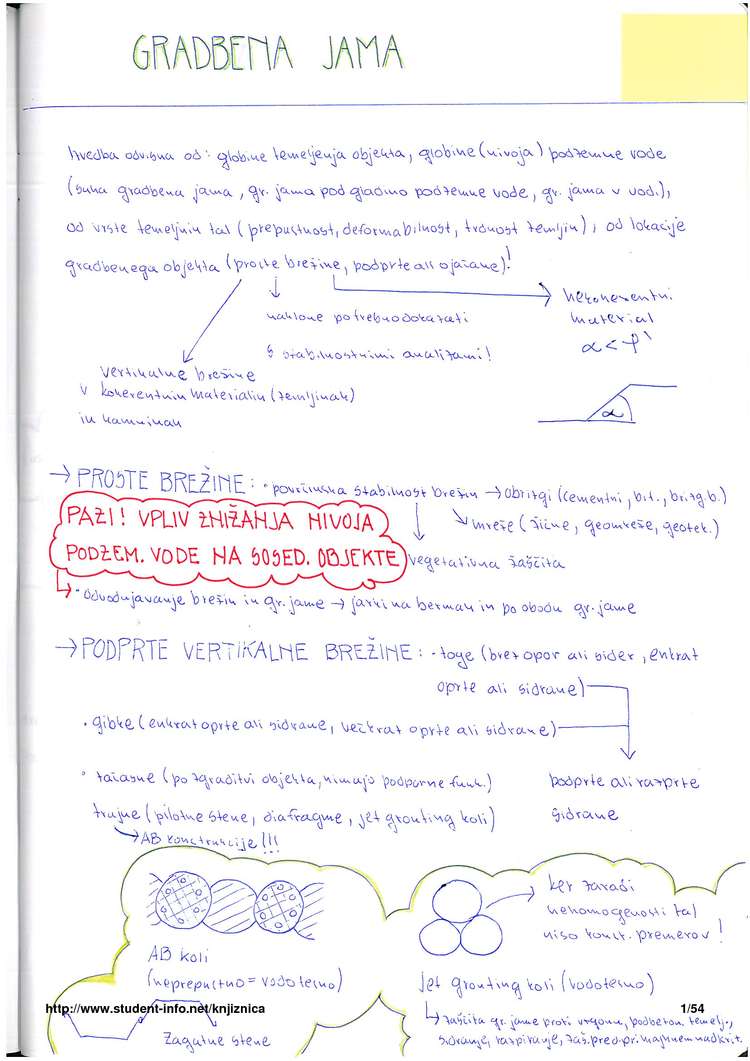 GRADBENA JAMA
Izvedba odvisna od: globine temeljenja objekta, globine (nivoja) podzemne vode
(suha gradbena jama, gr. jama pod gladino podzemne vode, gr. jama v vodi),
od vrste temeljnih tal (prepustnost, deformabilnost, trdnost zemljin), od lokacije
gradbenega objekta (proste brežine, podprte ali ojačane)!
naklone potrebno dokazati
s stabilnostnimi analizami!
nekoherentni
material
α < φ'
vertikalne brežine
v koherentnih materialih (zemljinah)
in kamninah
α
→ PROSTE BREŽINE: • površinska stabilnost brežin → obrizgi (cementni, bit., br.izg b.)
PAZI! VPLIV ZNIŽANJA NIVOJA
PODZEM. VODE NA SOSED. OBJEKTE
mreže (žične, geomreže, geotek.)
vegetativna zaščita
• Odvodnjavanje brežin in gr. jame → jarki na bermah in po obodu gr. jame
→ PODPRTE VERTIKALNE BREŽINE: • toge (brez opor ali sider, enkrat
oprte ali sidrane)
• gibke (enkrat oprte ali sidrane, večkrat oprte ali sidrane)
• začasne (po zgraditvi objekta, nimajo podporne funk.)
podprte ali razprte
trajne (pilotne stene, diafragme, jet grouting koli)
sidrane
→ AB konstrukcije!!!
ker zaradi
nehomogenosti tal
niso konst. premerov!
AB koli
(neprepustno = vodotesno)
jet grouting koli (vodotesno)
http://www.student-info.net/knjiznica
1/54
zaščita gr. jame proti vdorom, podbeton. temelj.,
Zagatne stene
sidranje, razpiranje, zaš. pred. pri majhnem nadkrit.